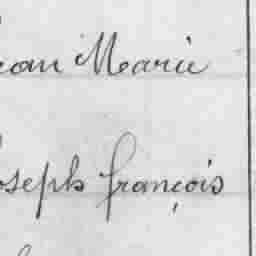 ean Marie
oseph françois